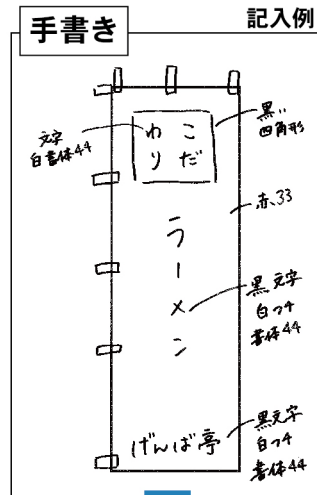 手書き
記入例
文字
白書体44
こだ
わり
黒い
四角形
赤、33
ラーメン
黒文字
白フチ
書体44
げんば亭
黒文字
白フチ
書体44